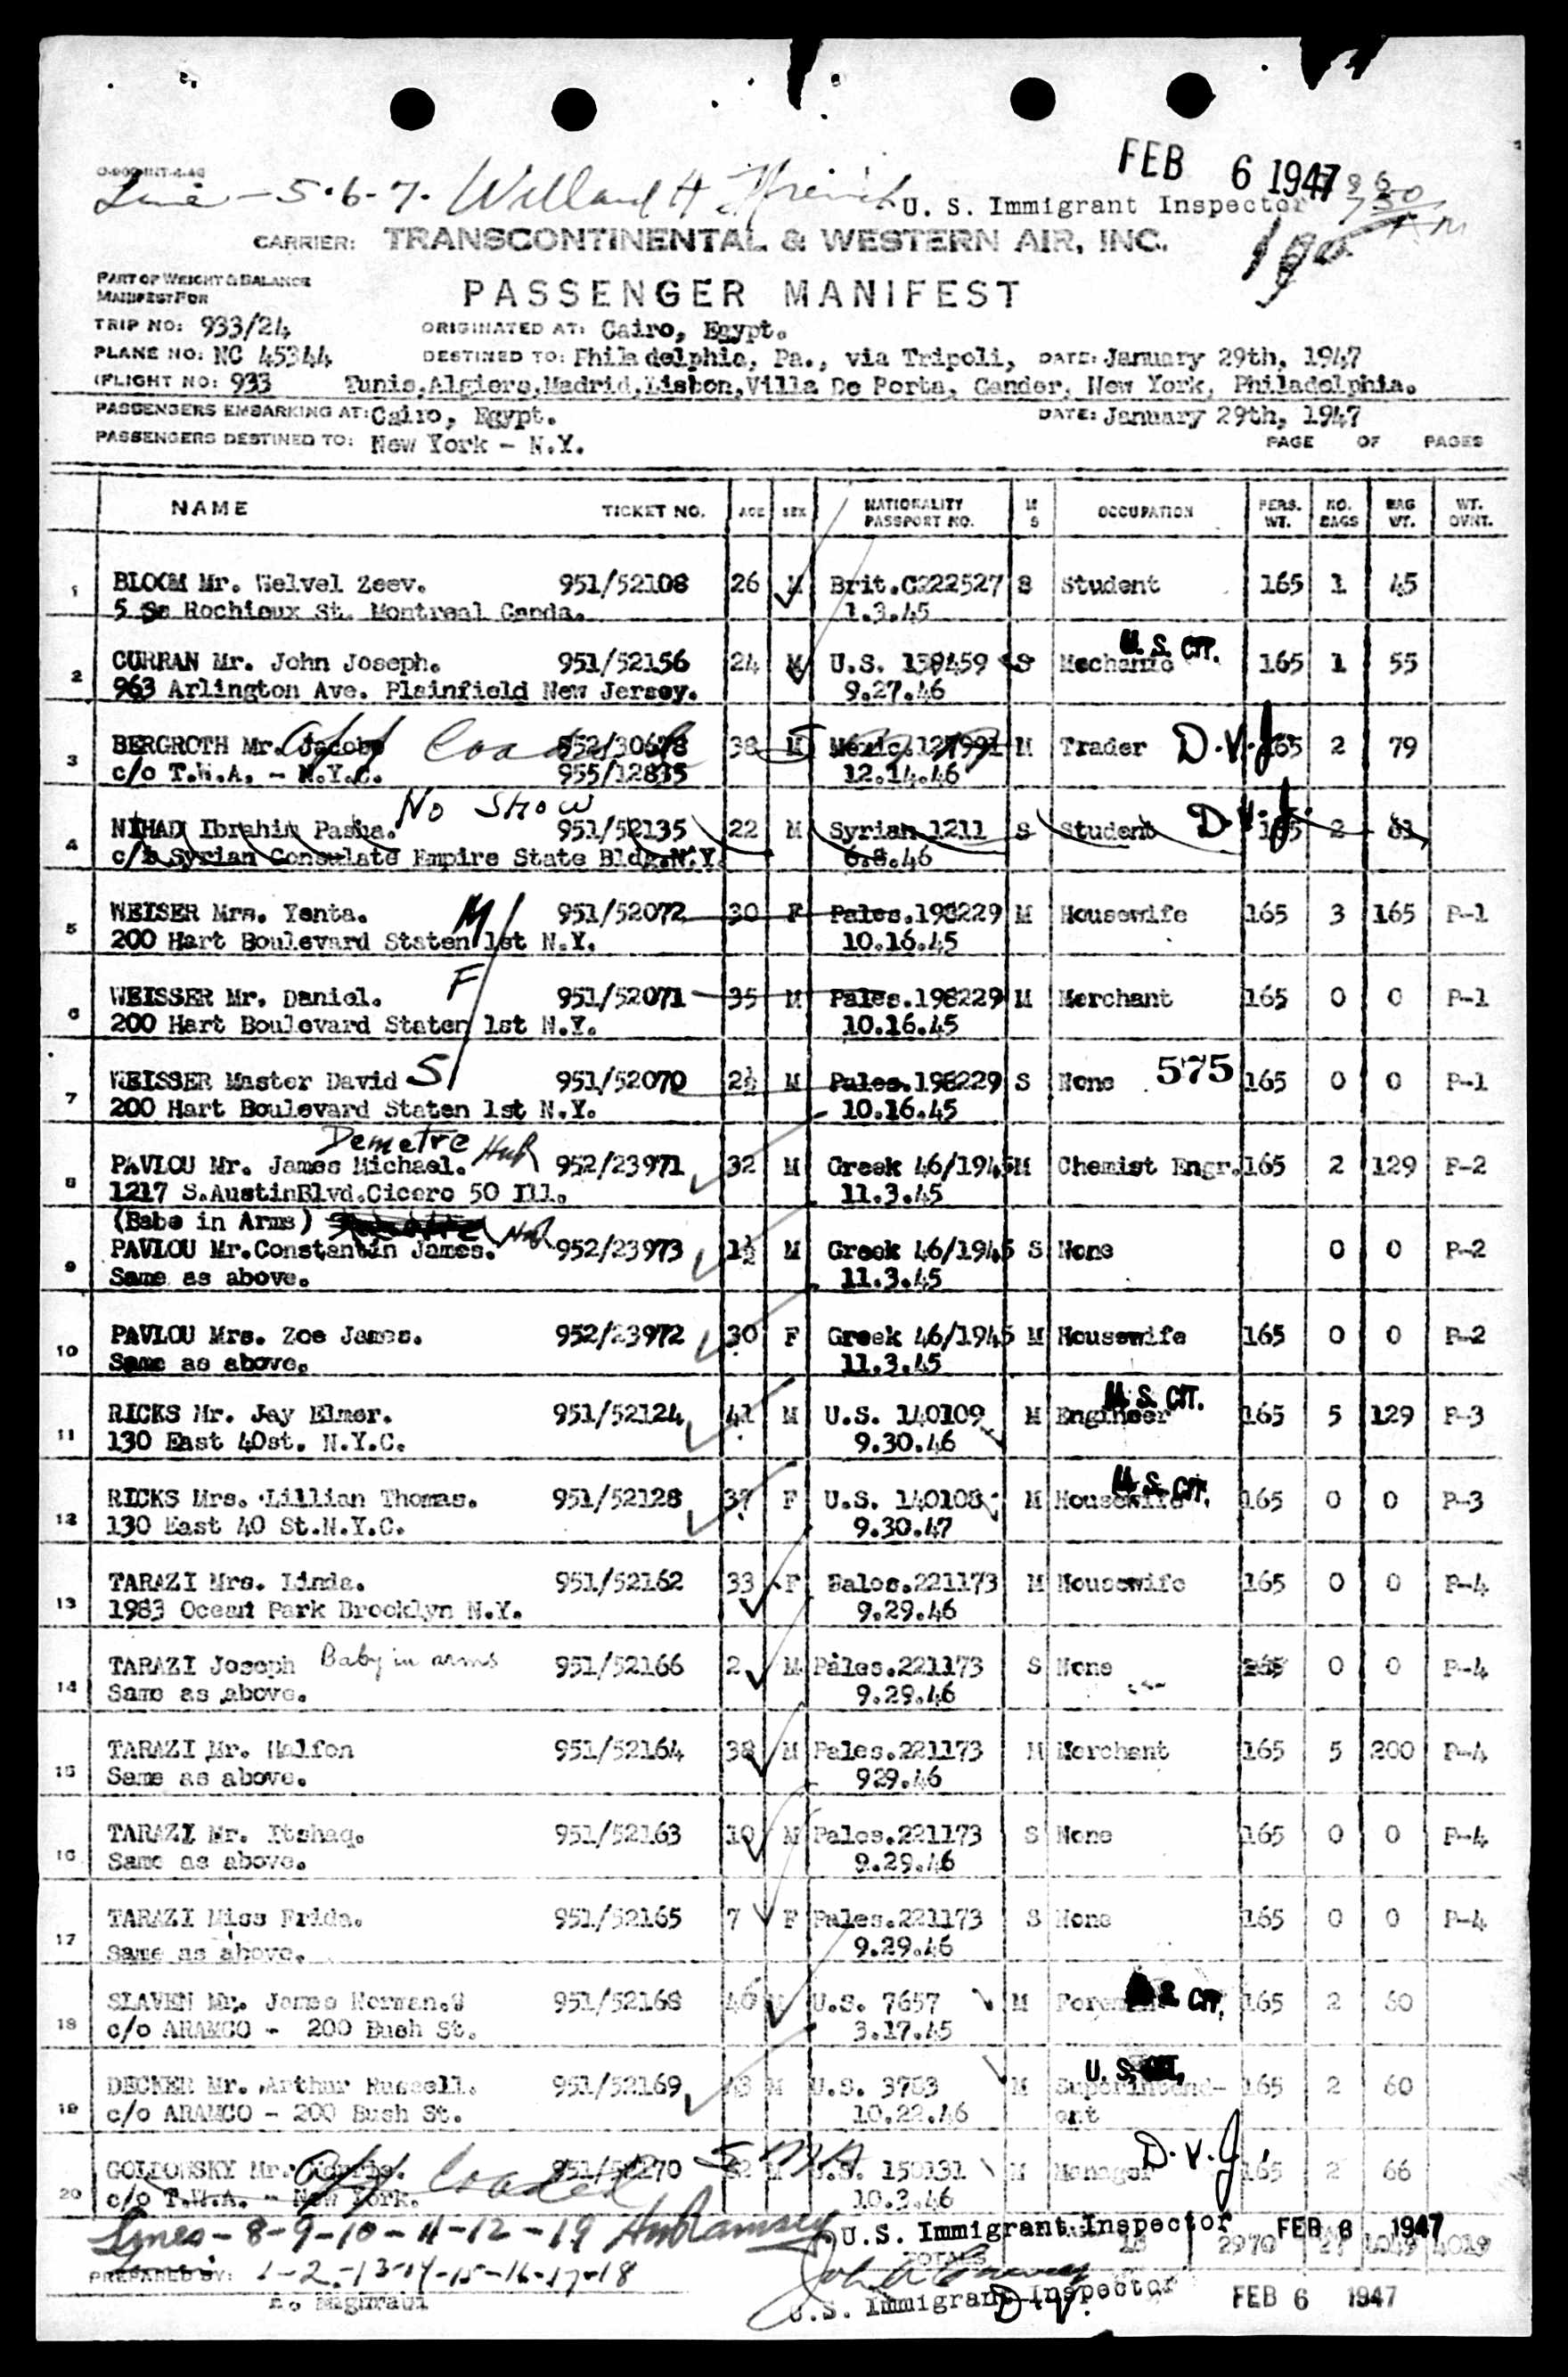 O-900-INT-4-46
Line - 5-6-7. Willard H
FEB 6 1947
U. S. Immigrant Inspector
CARRIER: TRANSCONTINENTAL & WESTERN AIR, INC.
PART OF WEIGHT & BALANCE
MANIFEST FOR
PASSENGER MANIFEST
TRIP NO: 933/24 ORIGINATED AT: Cairo, Egypt.
PLANE NO: NC 45344 DESTINED TO: Philadelphia, Pa., via Tripoli, DATE: January 29th, 1947
FLIGHT NO: 933 Tunis,Algiers,Madrid,Lisbon,Villa De Porta, Gander, New York, Philadelphia.
PASSENGERS EMBARKING AT: Cairo, Egypt. DATE: January 29th, 1947
PASSENGERS DESTINED TO: New York - N.Y. PAGE OF PAGES
NAME TICKET NO. AGE SEX NATIONALITY PASSPORT NO. M S OCCUPATION PERS. WT. NO. BAGS BAG WT. WT. OVNT.
1 BLOOM Mr. Welvel Zeev. 951/52108 26 M Brit.C222527 S Student 165 1 45
5 Sa Rochieux St. Montreal Canda. 1.3.45
U. S. CIT.
2 CURRAN Mr. John Joseph. 951/52156 24 M U.S. 139459 S Mechanic 165 1 55
963 Arlington Ave. Plainfield New Jersey. 9.27.46
Off Loaded
3 BERGROTH Mr. Jacobo 952/30678 38 M Mexic.127992 M Trader D.V.J. 165 2 79
c/o T.W.A. - N.Y.C. 955/12835 12.14.46
No Show
4 NIHAD Ibrahim Pasha. 951/52135 22 M Syrian 1211 S Student D.V.J. 165 2 61
c/o Syrian Consulate Empire State Bldg.N.Y. 6.8.46
5 WEISER Mrs. Yenta. M 951/52072 30 F Pales.198229 M Housewife 165 3 165 P-1
200 Hart Boulevard Staten 1st N.Y. 10.16.45
6 WEISSER Mr. Daniel. F 951/52071 35 M Pales.198229 M Merchant 165 0 0 P-1
200 Hart Boulevard Staten 1st N.Y. 10.16.45
7 WEISSER Master David S 951/52070 2½ M Pales.198229 S None 575 165 0 0 P-1
200 Hart Boulevard Staten 1st N.Y. 10.16.45
Demetre
8 PAVLOU Mr. James Michael. HWR 952/23971 32 M Greek 46/1945 M Chemist Engr. 165 2 129 P-2
1217 S.AustinBlvd.Cicero 50 Ill. 11.3.45
(Babe in Arms)
9 PAVLOU Mr.Constantin James. 952/23973 1½ M Greek 46/1945 S None 0 0 P-2
Same as above. 11.3.45
10 PAVLOU Mrs. Zoe James. 952/23972 30 F Greek 46/1945 M Housewife 165 0 0 P-2
Same as above. 11.3.45
U. S. CIT.
11 RICKS Mr. Jay Elmer. 951/52124 41 M U.S. 140109 M Engineer 165 5 129 P-3
130 East 40st. N.Y.C. 9.30.46
U. S. CIT.
12 RICKS Mrs. Lillian Thomas. 951/52128 37 F U.S. 140108 M Housewife 165 0 0 P-3
130 East 40 St.N.Y.C. 9.30.47
13 TARAZI Mrs. Linda. 951/52162 33 F Pales.221173 M Housewife 165 0 0 P-4
1983 Ocean Park Brooklyn N.Y. 9.29.46
14 TARAZI Joseph Baby in arms 951/52166 2 M Pales.221173 S None 165 0 0 P-4
Same as above. 9.29.46
15 TARAZI Mr. Halfon 951/52164 38 M Pales.221173 M Merchant 165 5 200 P-4
Same as above. 929.46
16 TARAZI Mr. Itshaq. 951/52163 10 M Pales.221173 S None 165 0 0 P-4
Same as above. 9.29.46
17 TARAZI Miss Frida. 951/52165 7 F Pales.221173 S None 165 0 0 P-4
Same as above. 9.29.46
18 SLAVEN Mr. James Norman. 951/52168 46 U.S. 7657 M Foreman U. S. CIT. 165 2 60
c/o ARAMCO - 200 Bush St. 3.17.45
U. S. CIT.
19 DECKER Mr. Arthur Russell. 951/52169 43 M U.S. 3783 M Superintend- 165 2 60
c/o ARAMCO - 200 Bush St. 10.22.46 ent
Off Loaded
20 Mr. 951/52270 M U.S. 150131 M Manager D.V.J. 165 2 66
c/o T.W.A. - New York. 10.3.46
Lines - 8-9-10-11-12-19 HWRamsey U.S. Immigrant Inspector FEB 6 1947
TOTALS 18 2970 27 1049 4019
PREPARED BY: 1-2-13-14-15-16-17-18
U.S. Immigrant Inspector FEB 6 1947